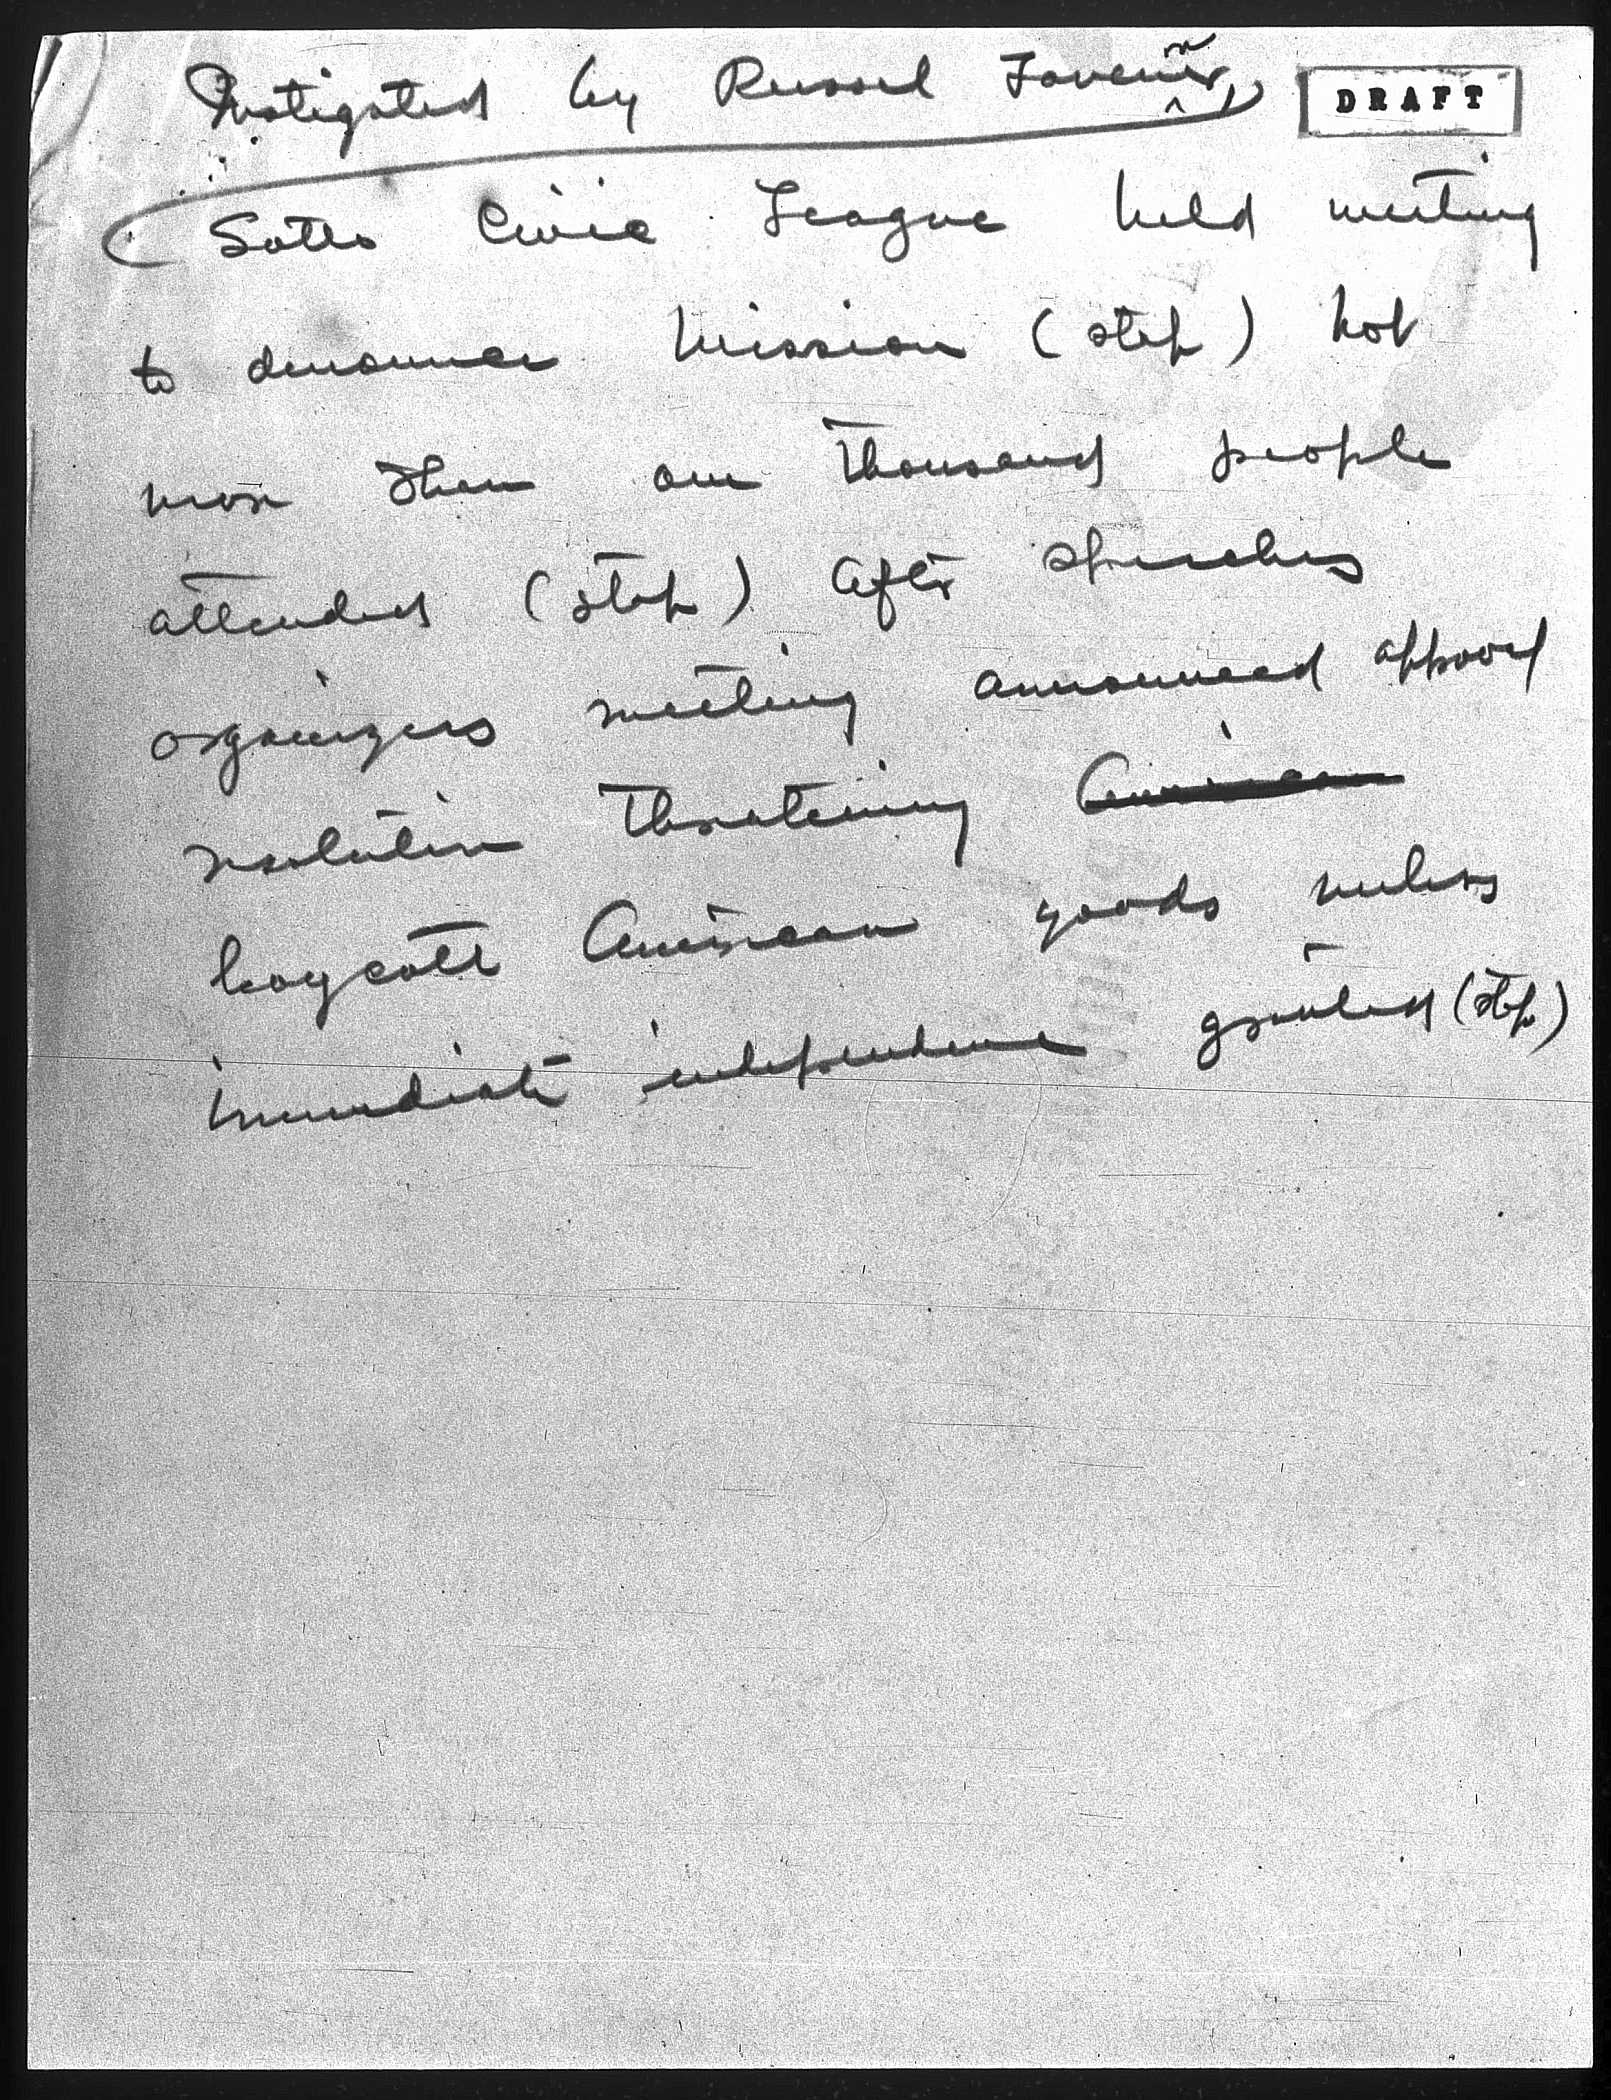 Instigated by Russel
DRAFT
Sotto Civic League held meeting
to denounce Mission (stop) Not
more than one thousand people
attended (stop) After speeches
organizers meeting announced approval
resolution threatening American
boycott American goods unless
immediate independence granted (stop)